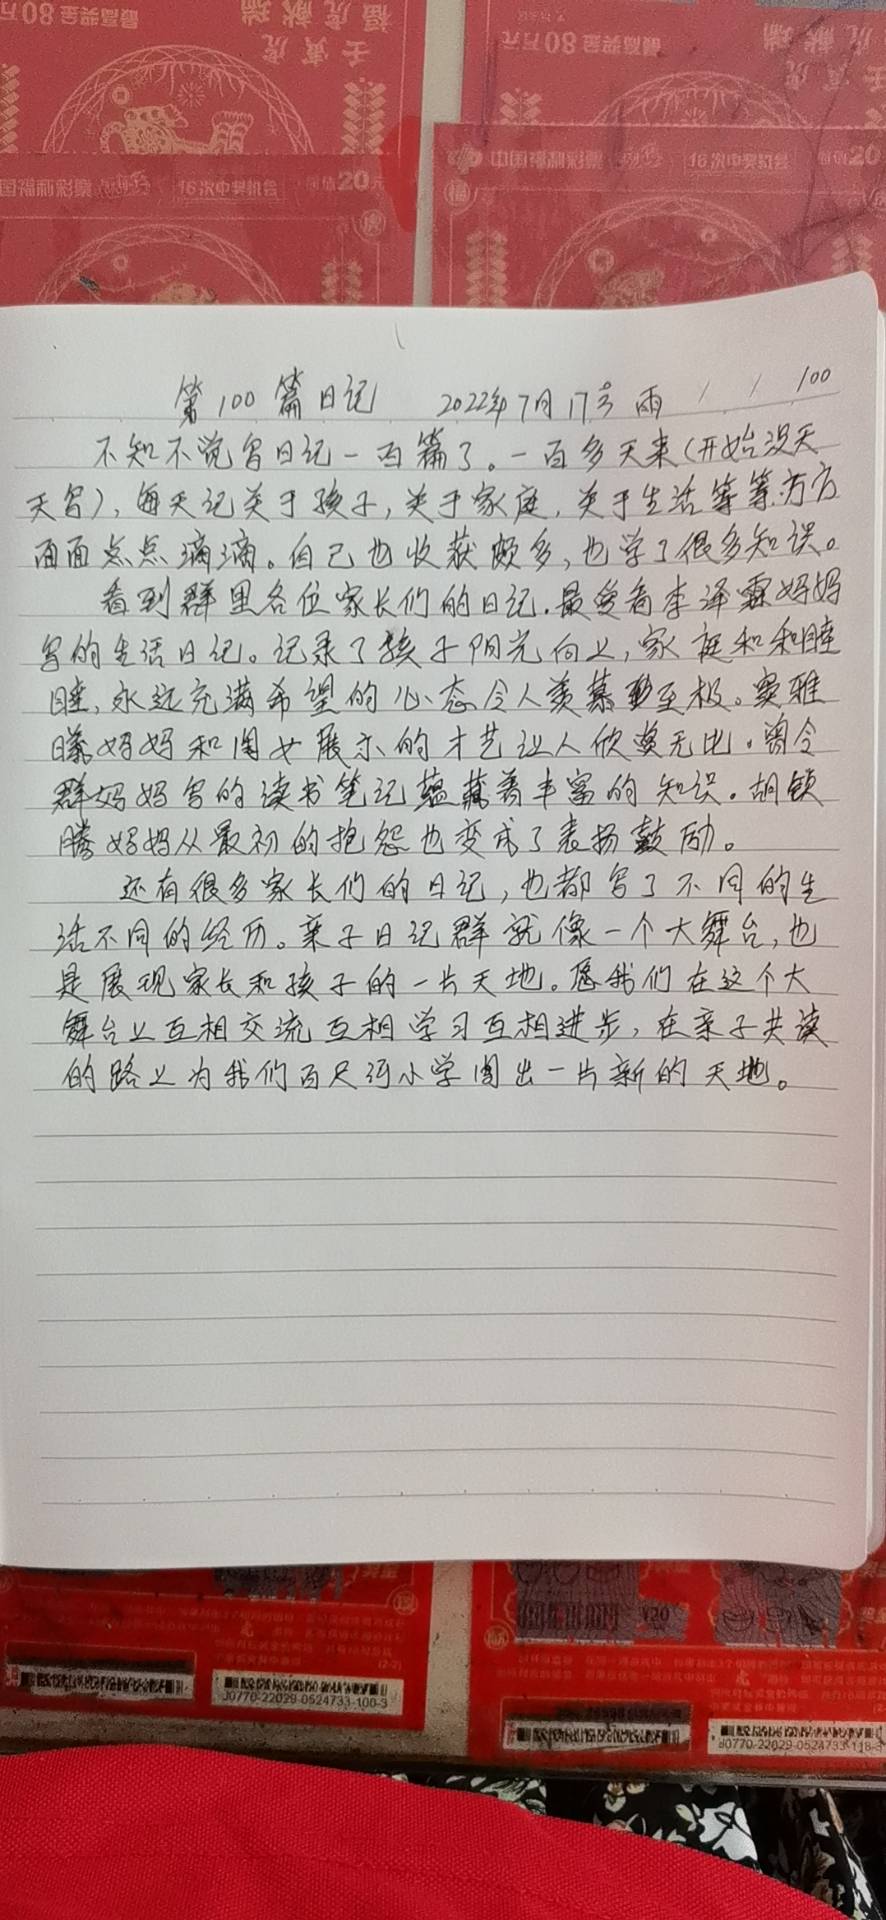 最高奖金80万元
福虎献瑞
壬寅虎
最高奖金80万元
虎献瑞
壬寅虎
国福利彩票
16次中奖机会
面值20元
中国福利彩票
16次中奖机会
面值20
虎
福
第100篇日记 2022年7月17号 雨 / / 100
不知不觉写日记一百篇了。一百多天来(开始没天
天写),每天记关于孩子,关于家庭,关于生活等等方方
面面点点滴滴。自己也收获颇多,也学了很多知识。
看到群里各位家长们的日记.最爱看李泽霖妈妈
写的生活日记。记录了孩子阳光向上,家庭和和睦
睦,永远充满希望的心态令人羡慕至极。窦雅
曦妈妈和闺女展示的才艺让人欣赏无比.窦令
群妈妈写的读书笔记蕴藏着丰富的知识.胡锁
腾妈妈从最初的抱怨也变成了表扬鼓励。
还有很多家长们的日记,也都写了不同的生
活不同的经历。亲子日记群就像一个大舞台,也
是展现家长和孩子的一片天地。愿我们在这个大
舞台上互相交流互相学习互相进步,在亲子共读
的路上为我们百尺河小学闯出一片新的天地。
(2-2)
J0770-22029-0524733-100-3
¥20
J0770-22029-0524733-118-3